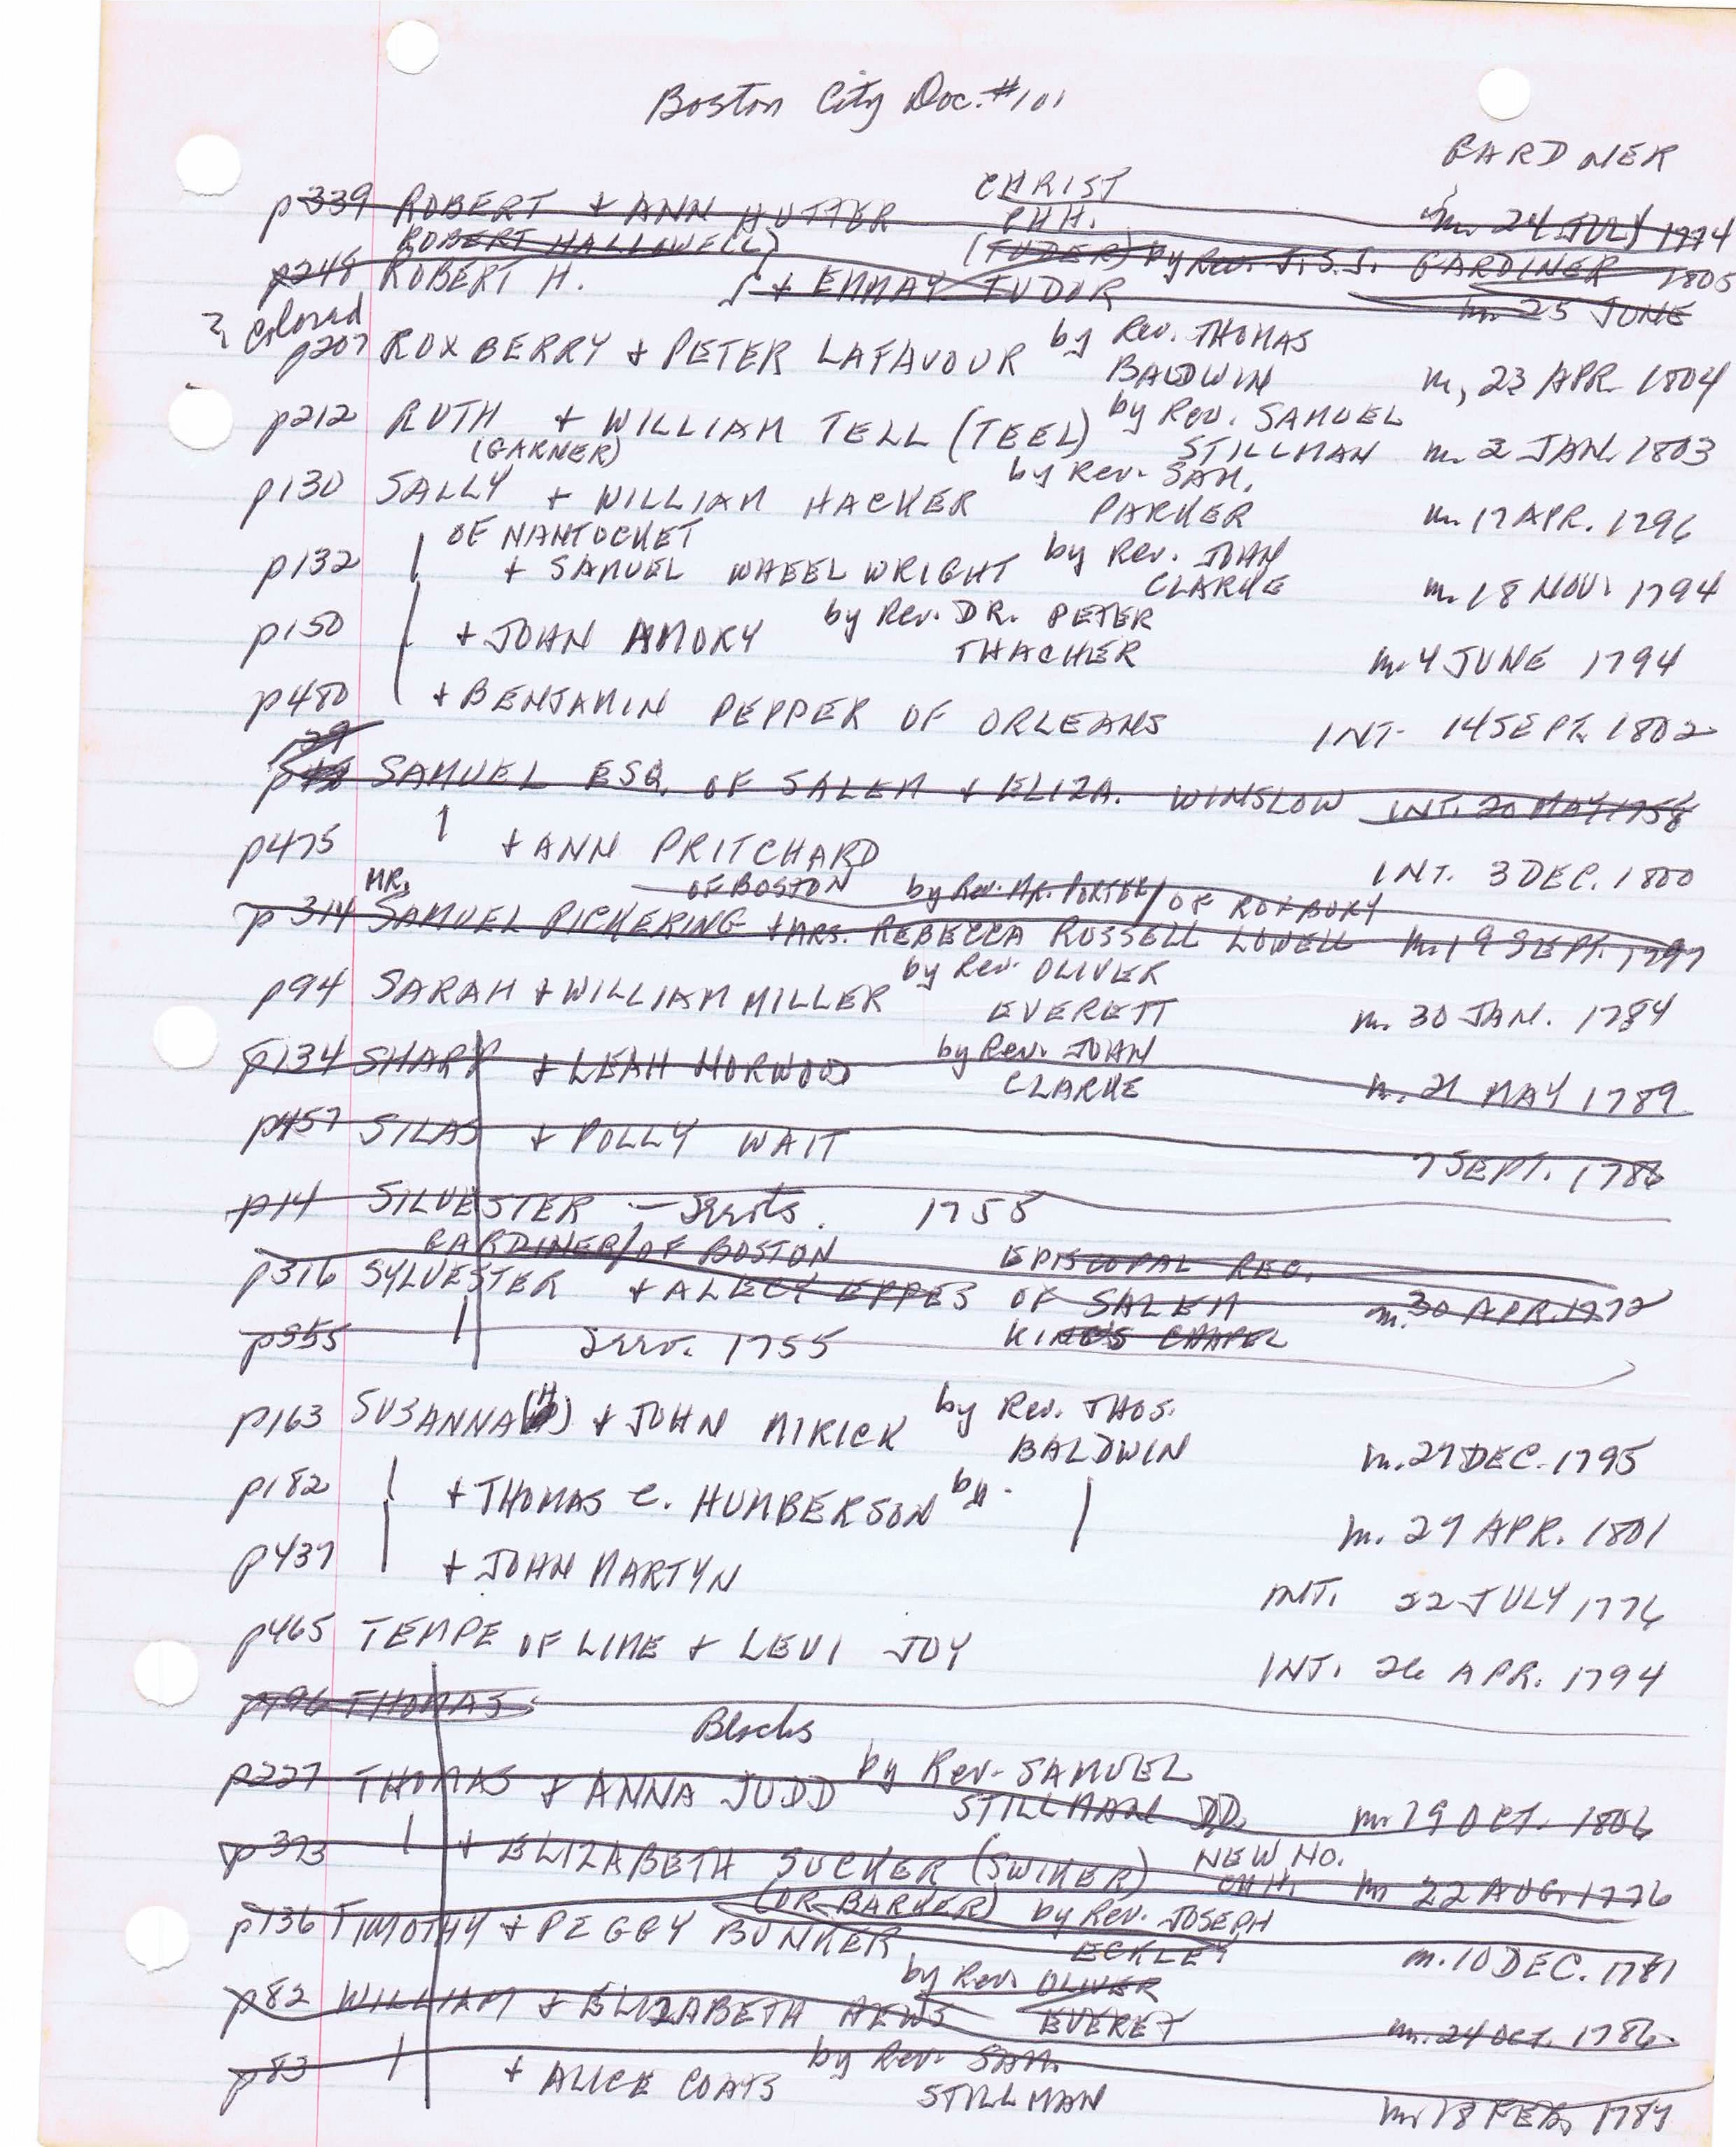 Boston City Doc. #101
GARDNER
CHRIST
p339 ROBERT + ANN HUTTER CHH. m. 24 JULY 1774
ROBERT HALLOWELL) (TUDER) by Rev. J.S.J. GARDINER 1805
p248 ROBERT H. + EMMA TUDOR m. 25 JUNE
? Colored
p207 ROXBERRY + PETER LAFAVOUR by Rev. THOMAS
BALDWIN m, 23 APR. 1804
p212 RUTH + WILLIAM TELL (TEEL) by Rev. SAMUEL
(GARNER) STILLMAN m. 2 JAN. 1803
p130 SALLY + WILLIAM HACKER by Rev. SAM.
PARKER m. 17 APR. 1796
OF NANTOCKET
p132 | + SAMUEL WHEELWRIGHT by Rev. JOHN
CLARKE m. 18 NOV. 1794
p150 | + JOHN AMORY by Rev. DR. PETER
THACHER m. 4 JUNE 1794
p480 | + BENJAMIN PEPPER OF ORLEANS INT. 14 SEPT. 1802
29
SAMUEL ESQ. OF SALEM + ELIZA. WINSLOW INT. 20 MAY 1758
p475 | + ANN PRITCHARD INT. 3 DEC. 1800
MR. OF BOSTON by Rev. MR. PORTER/OF ROXBURY
p314 SAMUEL PICKERING + MRS. REBECCA RUSSELL LOWELL m. 19 SEPT. 1797
p94 SARAH + WILLIAM MILLER by Rev. OLIVER
EVERETT m. 30 JAN. 1784
p134 SHARP + LEAH NORWOOD by Rev. JOHN
CLARKE m. 21 MAY 1789
p457 SILAS + POLLY WAIT 7 SEPT. 1786
p14 SILVESTER — 1755
GARDINER/OF BOSTON EPISCOPAL REC.
p316 SYLVESTER + ALECY EPPES OF SALEM m. 30 APR. 1772
p355 | 1755 KING'S CHAPEL
p163 SUSANNA(H) + JOHN MIRICK by Rev. THOS.
BALDWIN m. 27 DEC. 1795
p182 | + THOMAS C. HUMBERSON by. | m. 29 APR. 1801
p437 | + JOHN MARTYN INT. 22 JULY 1776
p465 TEMPE OF LIME + LEVI JOY INT. 26 APR. 1794
p196 THOMAS
Blacks
p227 THOMAS + ANNA JUDD by Rev. SAMUEL
STILLMAN DD. m. 19 OCT. 1806
p373 | + ELIZABETH SUCKER (SWIKER) NEW NO.
CHH. m 22 AUG. 1776
(OR BARKER) by Rev. JOSEPH
p136 TIMOTHY + PEGGY BUNKER ECKLEY m. 10 DEC. 1781
p82 WILLIAM + ELIZABETH HEWS by Rev. OLIVER
EVERET m. 24 OCT. 1786
p83 | + ALICE COATS by Rev. SAM.
STILLMAN m. 18 FEB. 1787